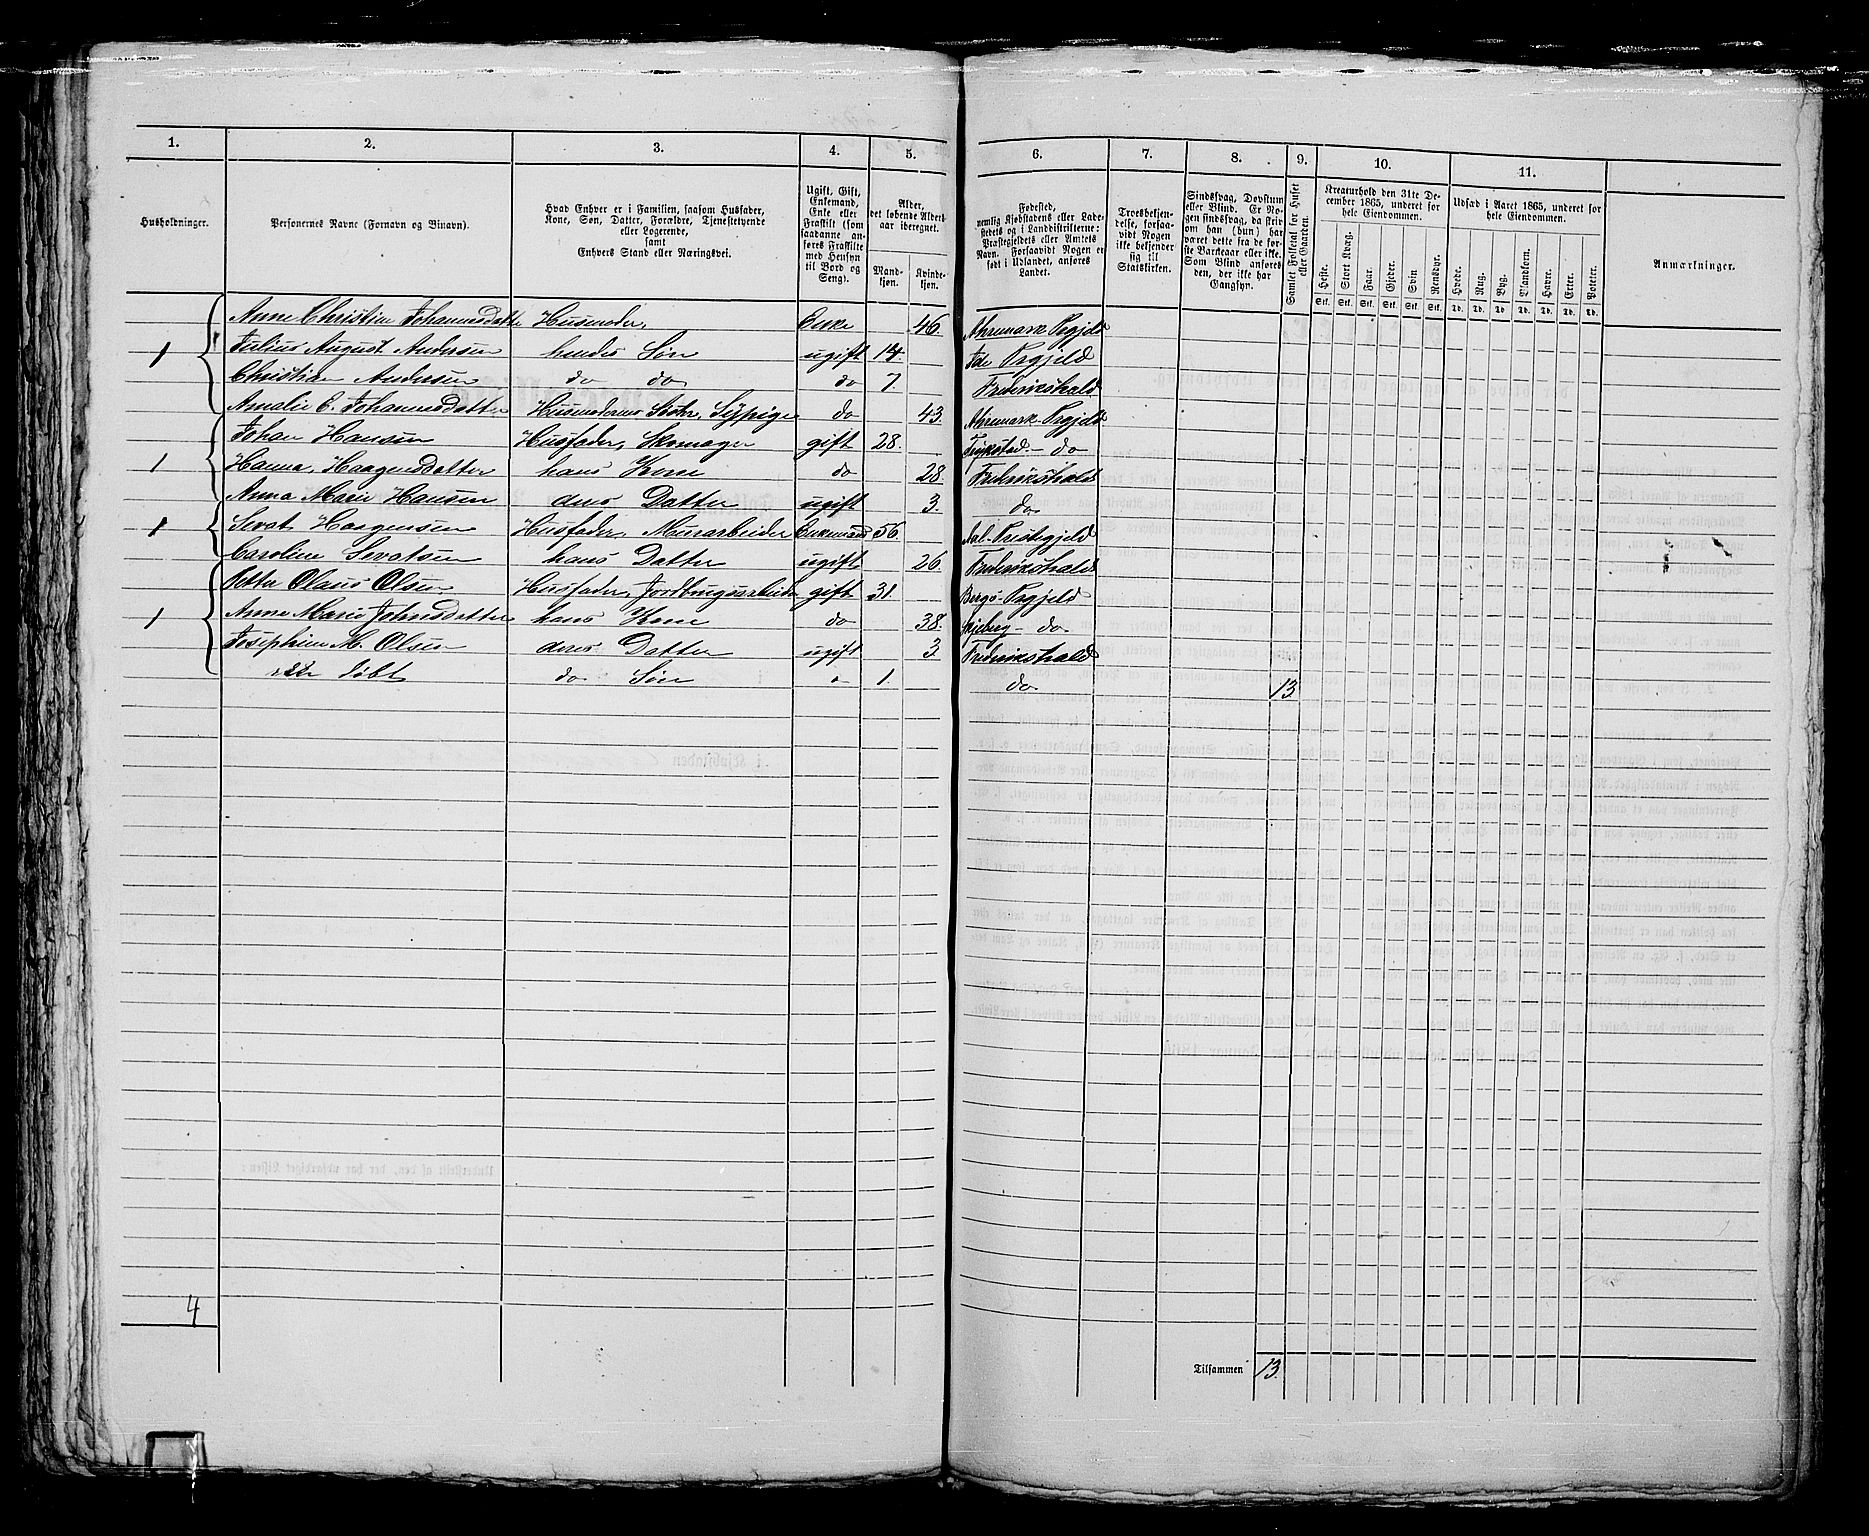 1. 2. 3. 4. 5. 6. 7. 8. 9. 10. 11.
Husholdninger.
Personernes Navne (Fornavn og Binavn).
Hvad Enhver er i Familien, saasom Husfader, Kone, Søn, Datter, Forældre, Tjenestetyende eller Logerende, samt Enhvers Stand eller Næringsvei.
Ugift, Gift, Enkemand, Enke eller Fraskilt (som saadanne anføres Fraskilte med Hensyn til Bord og Seng).
Alder, det løbende Alders-aar iberegnet.
Mandkjøn. Kvindekjøn.
Fødested, nemlig Kjøbstadens eller Ladestedets og i Landdistrikterne: Præstegjeldets eller Amtets Navn. Forsaavidt Nogen er født i Udlandet, anføres Landet.
Troesbekjendelse, forsaavidt Nogen ikke bekjender sig til Statskirken.
Sindssvag, Døvstum eller Blind. Er Nogen sindssvag, da skrives om han (hun) har været dette fra de første Barneaar eller ikke. Som Blind anføres den, der ikke har Gangsyn.
Samlet Folketal for Huset eller Gaarden.
Kreaturhold den 31te December 1865, underet for hele Eiendommen.
Heste. Stort Kvæg. Faar. Gjeder. Svin Rensdyr.
Stk. Stk. Stk. Stk. Stk. Stk.
Udsæd i Aaret 1865, underet for hele Eiendommen.
Hvede. Rug. Byg. Blandkorn. Havre. Erter. Poteter.
Td. Td. Td. Td. Td. Td. Td.
Anmærkninger.
Anne Christine Johannesdatter Husmoder, Enke 46. Ahremark Prgjeld
1 Julius August Andersen hendes Søn ugift 14. Ide Prgjeld
Christian Andersen do do do 7. Frederikshald
Amalie E. Johannesdatter Husmoderens Søster, Sypige do 43. Ahremark Prgjeld
Johan Hansen Husfader, Skomager gift 28. do
1 Hanna Haagensdatter hans Kone do 28. Frederikshald
Anna Marie Hansen deres Datter ugift 3. do
1 Sevat Haagensen Husfader, Murarbeider Enkemand 56. Aal Præstegjeld
Caroline Sevatsen hans Datter ugift 26. Frederikshald
Petter Olaus Olsen Husfader, gift 31. Bergs Prgjeld
1 Anne Marie Johnsdatter hans Kone do 38. Skjeberg do
Josephine M. Olsen deres Datter ugift 3 Frederikshald
døbt do Søn " 1. do 13
4
Tilsammen 13.